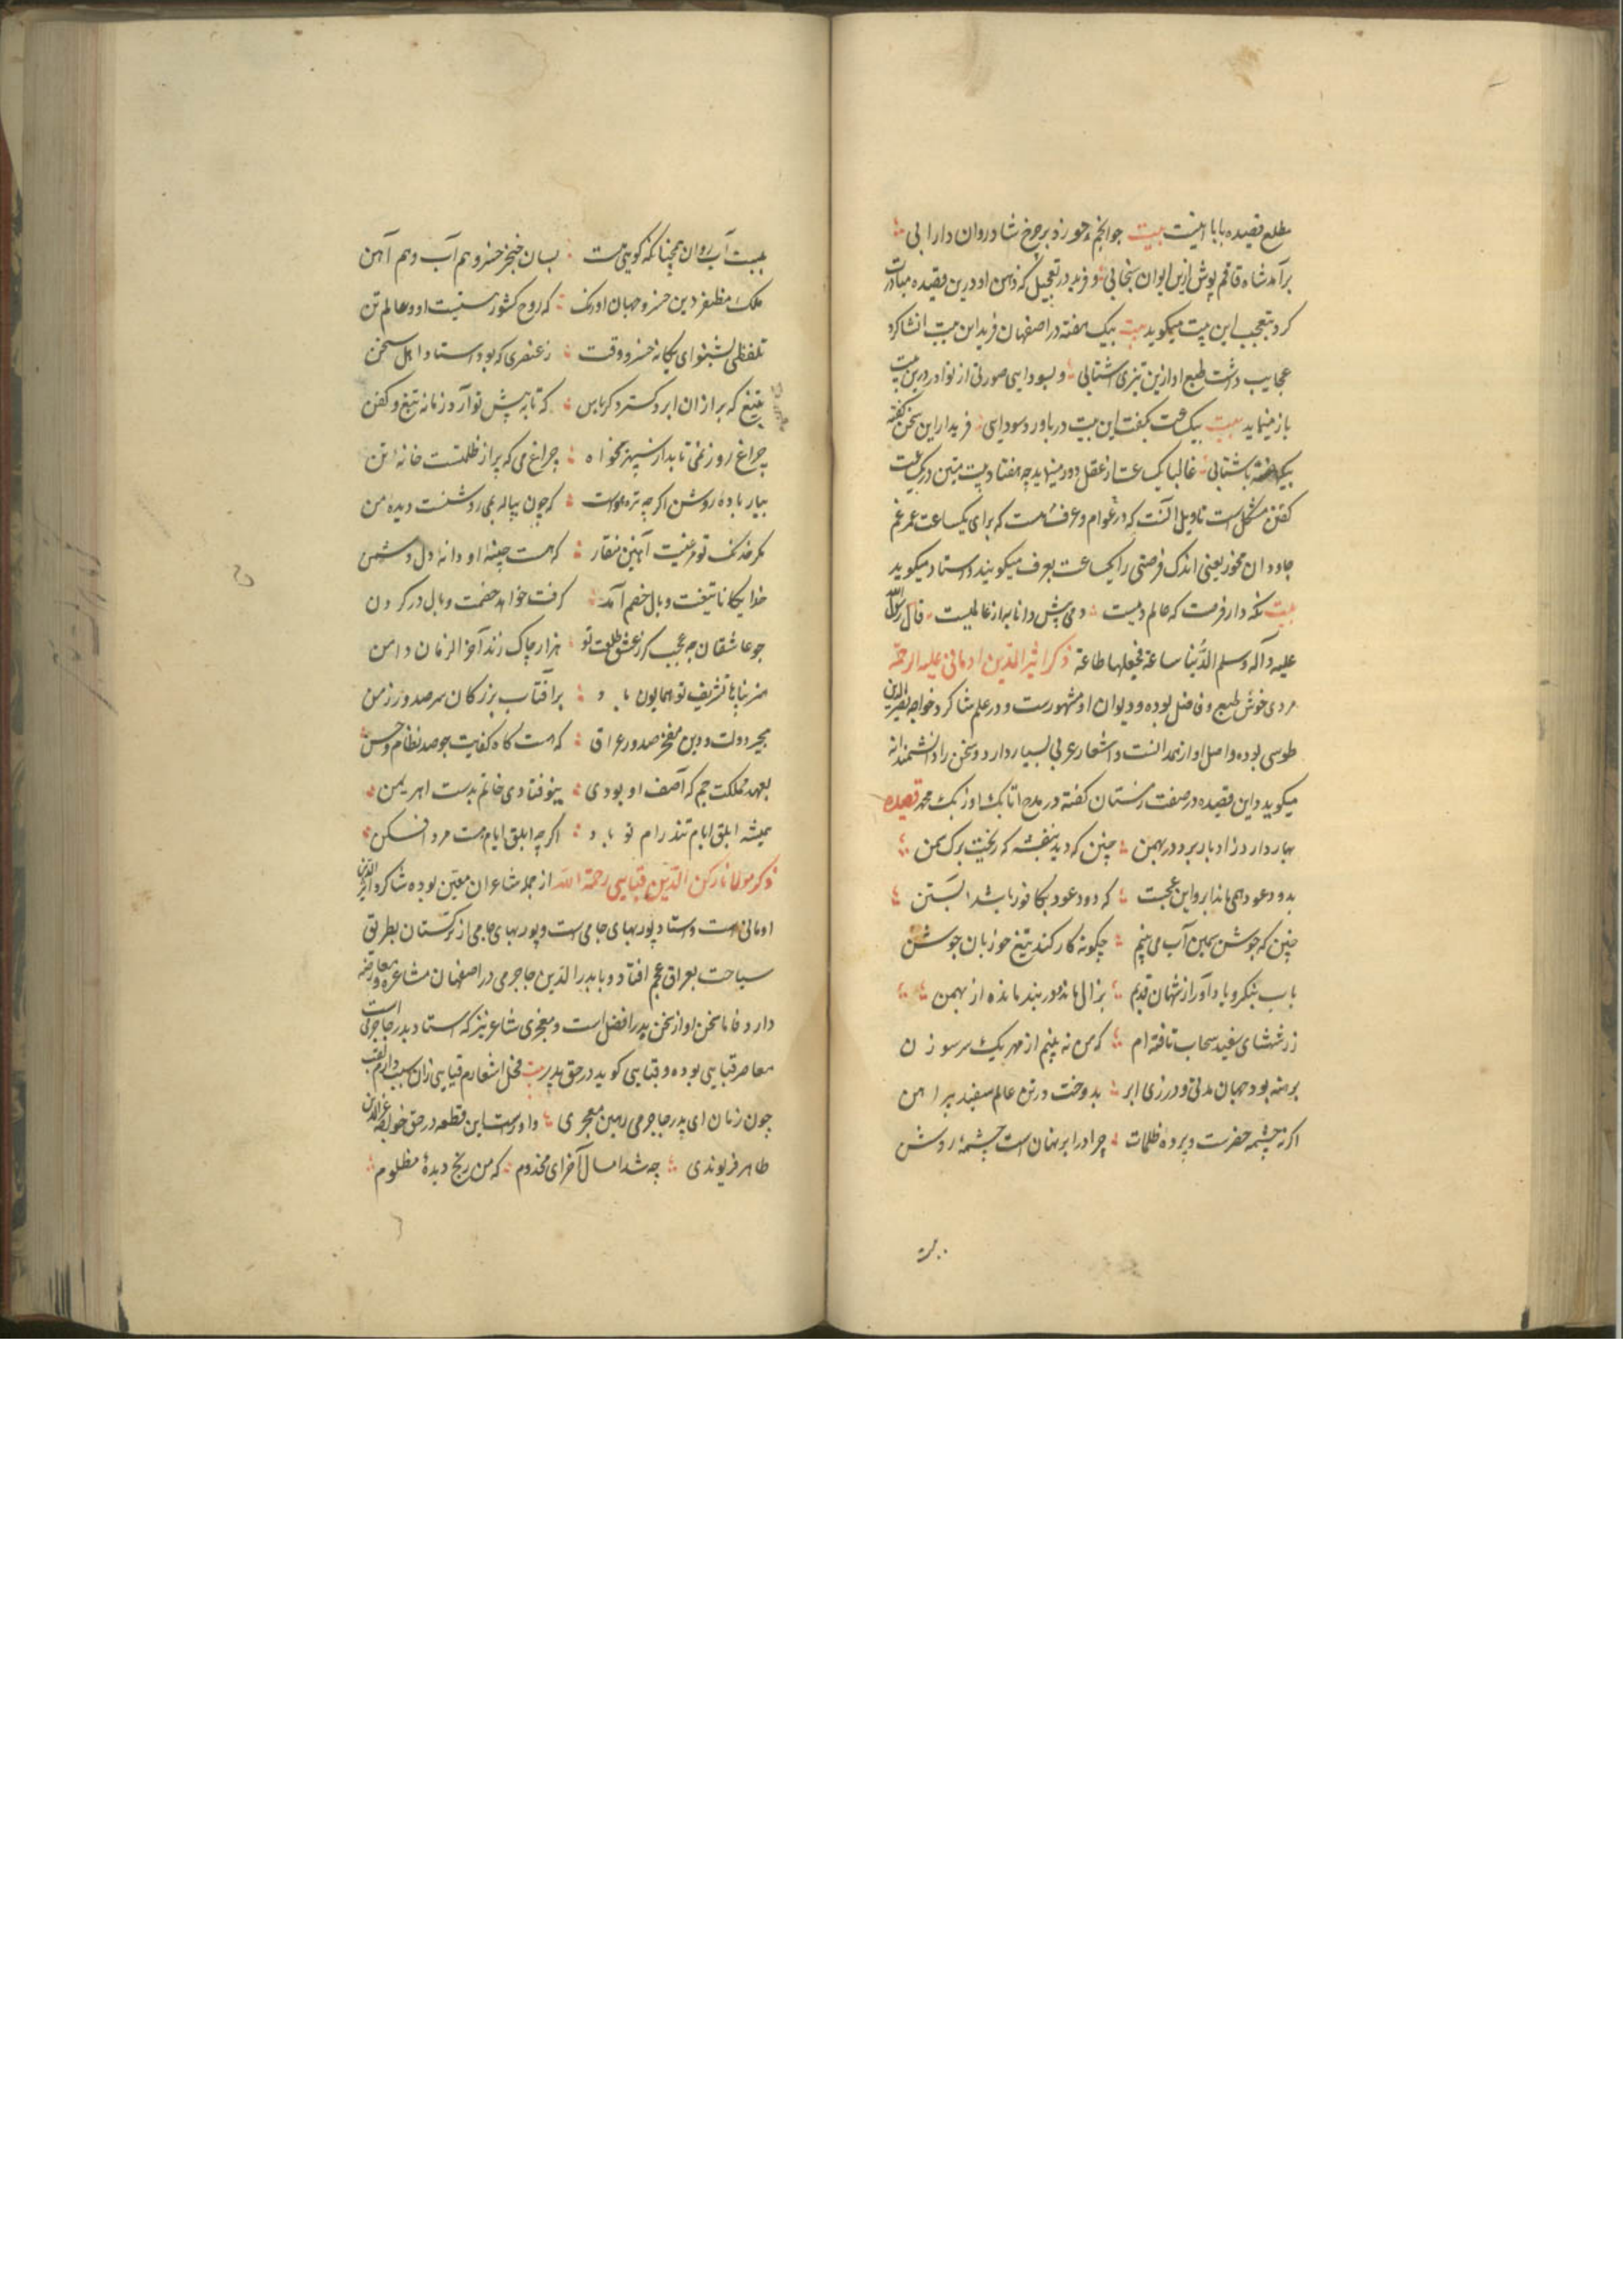 مطلع قصیده بابا اینست بیت جو انجم خور زد بر چرخ شادروان دارابی
برآمد شاه قاقم پوش ازین ایوان سنجابی و فرید در تعجیل که ذهن او درین قصیده مبادرت
کرد بتعجب این بیت میکوید بیت بیک هفته در اصفهان فرید این بیت انشا کرد
عجایب داشت طبع او ازین تیزی اشتابی و بسودایی صورتی از نوادر درین بیت
باز مینماید بیت بیک ساعت بگفت این بیت در باورد سودایی فرید ار این سخن گفته
بیکهفته باشتابی غالبا یکساعت از عقل دور مینماید چه هفتاد بیت متین در یکساعت
کفتن مشکل است تاویل آنست که در عوام و عرف هست که برای یکساعت عمر غم
جاودان مخور یعنی اندک فرصتی را یکساعت بعرف میکویند و استاد میکوید
بیت نکه دار فرصت که عالم دمیست دمی پیش دانا به از عالمیست قال رسول الله
علیه و آله و سلم الدنیا ساعة فجعلها طاعة ذکر اثیر الدین اومانی علیه الرحمة
مردی خوش طبع و فاضل بوده و دیوان او مشهورست و در علم شاکرد خواجه نصیر الدین
طوسی بوده و اصل او از همدانست و اشعار عربی بسیار دارد و سخن را دانشمندانه
میکوید و این قصیده در صفت زمستان کفته در مدح اتابک اوزبک محمد قصیده
بهار دارد زاد بار برد در بهمن چنین که دید بنفشه که ریخت برک سمن
بدود عود همی ماند ابر و این عجبست که دود عود بکافور باشد آبستن
چنین که جوشن سیمین آب می بینم چکونه کار کند تیغ خور بان جوشن
باب بنکر و یاد آور از شهان قدیم بزال ماند در بند مانده از بهمن
زر شتهای سفید سحاب تافته ام که من نه بینم از مهر یک سر سوزن
برهنه بود جهان مدتی و درزی ابر بدوخت در تن عالم سفید پیراهن
اکر نه چشمه خضرست و پرده ظلمات چرا در ابر نهان است چشمهٔ روشن
ببست آب روان همچنانکه کویی هست بسان خنجر خسرو هم آب و هم آهن
ملک مظفر دین خسرو جهان اوزبک که روح کشور سنیست او و عالم تن
تلفظی بشنو ای یکانه خسرو وقت ز عنصری که بود استاد اهل سخن
بتیغ که بر از ان ابر و کسترد کرباس که تا به پیش تو آرد زمانه تیغ و کفن
چراغ روز نمی تابد از سپهر بخواه چراغ می که پر از ظلمتست خانهٔ تن
بیار بادهٔ روشن اکرچه تیره هواست که چون پیاله بمی روشنست دیده من
مکر خدنک تو مرغیست آهنین منقار که هست چینه او دانه دل دشمن
خدایکانا تیغت وبال خصم آمد کرفت خواهد خصمت وبال در کردن
چو عاشقان چه عجب کر ز عشق طلعت تو هزار چاک زند آخر الزمان دامن
هنر پناها تشریف تو همایون باد بر آفتاب بزرکان سر صدور زمن
مجیر دولت و دین مفخر صدور عراق که هست کاه کفایت چو صد نظام و حسن
بعهد مملکت جم که آصف او بودی بنوفتادی خاتم بدست اهریمن
همیشه ابلق ایام تند رام تو باد اکرچه ابلق ایام هست مرد افکن
ذکر مولانا رکن الدین قبایی رحمة الله از جمله شاعران معین بوده شاکرد اثیر الدین
اومانی است و استاد پوربهای جامی است و پوربهای جامی از ترکستان بطریق
سیاحت بعراق عجم افتاد و با بدر الدین جاجرمی در اصفهان مشاعره و معارضه
دارد فاما سخن او از سخن بدر افضل است و مجری شاعر نیز که استاد بدر جاجرمی است
معاصر قبایی بوده و قبایی کوید در حق بدر بیت فحل اشعارم قبایی زان سبب دارم لقب
چون زنان ای بدر جاجرمی رهین معجری و او راست این قطعه در حق خواجه عز الدین
طاهر فریوندی چه شد امسال آخر ای مخدوم که من رنج دیدهٔ مظلوم